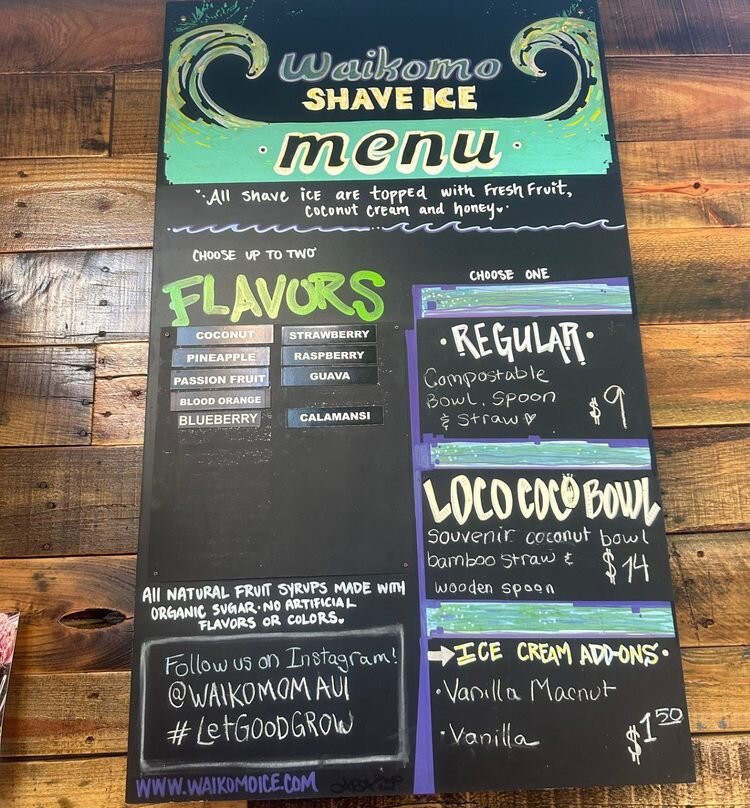 Waikomo
SHAVE ICE
menu
All shave ice are topped with Fresh Fruit,
Coconut Cream and honey
CHOOSE UP TO TWO
FLAVORS
COCONUT
PINEAPPLE
PASSION FRUIT
BLOOD ORANGE
BLUEBERRY
STRAWBERRY
RASPBERRY
GUAVA
CALAMANSI
ALL NATURAL FRUIT SYRUPS MADE WITH
ORGANIC SUGAR · NO ARTIFICIAL
FLAVORS OR COLORS.
Follow us on Instagram!
@WAIKOMOMAUI
# LetGOODGROW
WWW.WAIKOMOICE.COM
CHOOSE ONE
· REGULAR ·
Compostable
Bowl, Spoon
& Straw ♡
$9
LOCO COCO BOWL
Souvenir coconut bowl
bamboo straw &
wooden spoon
$14
ICE CREAM ADD-ONS ·
· Vanilla Macnut
· Vanilla
$1 50